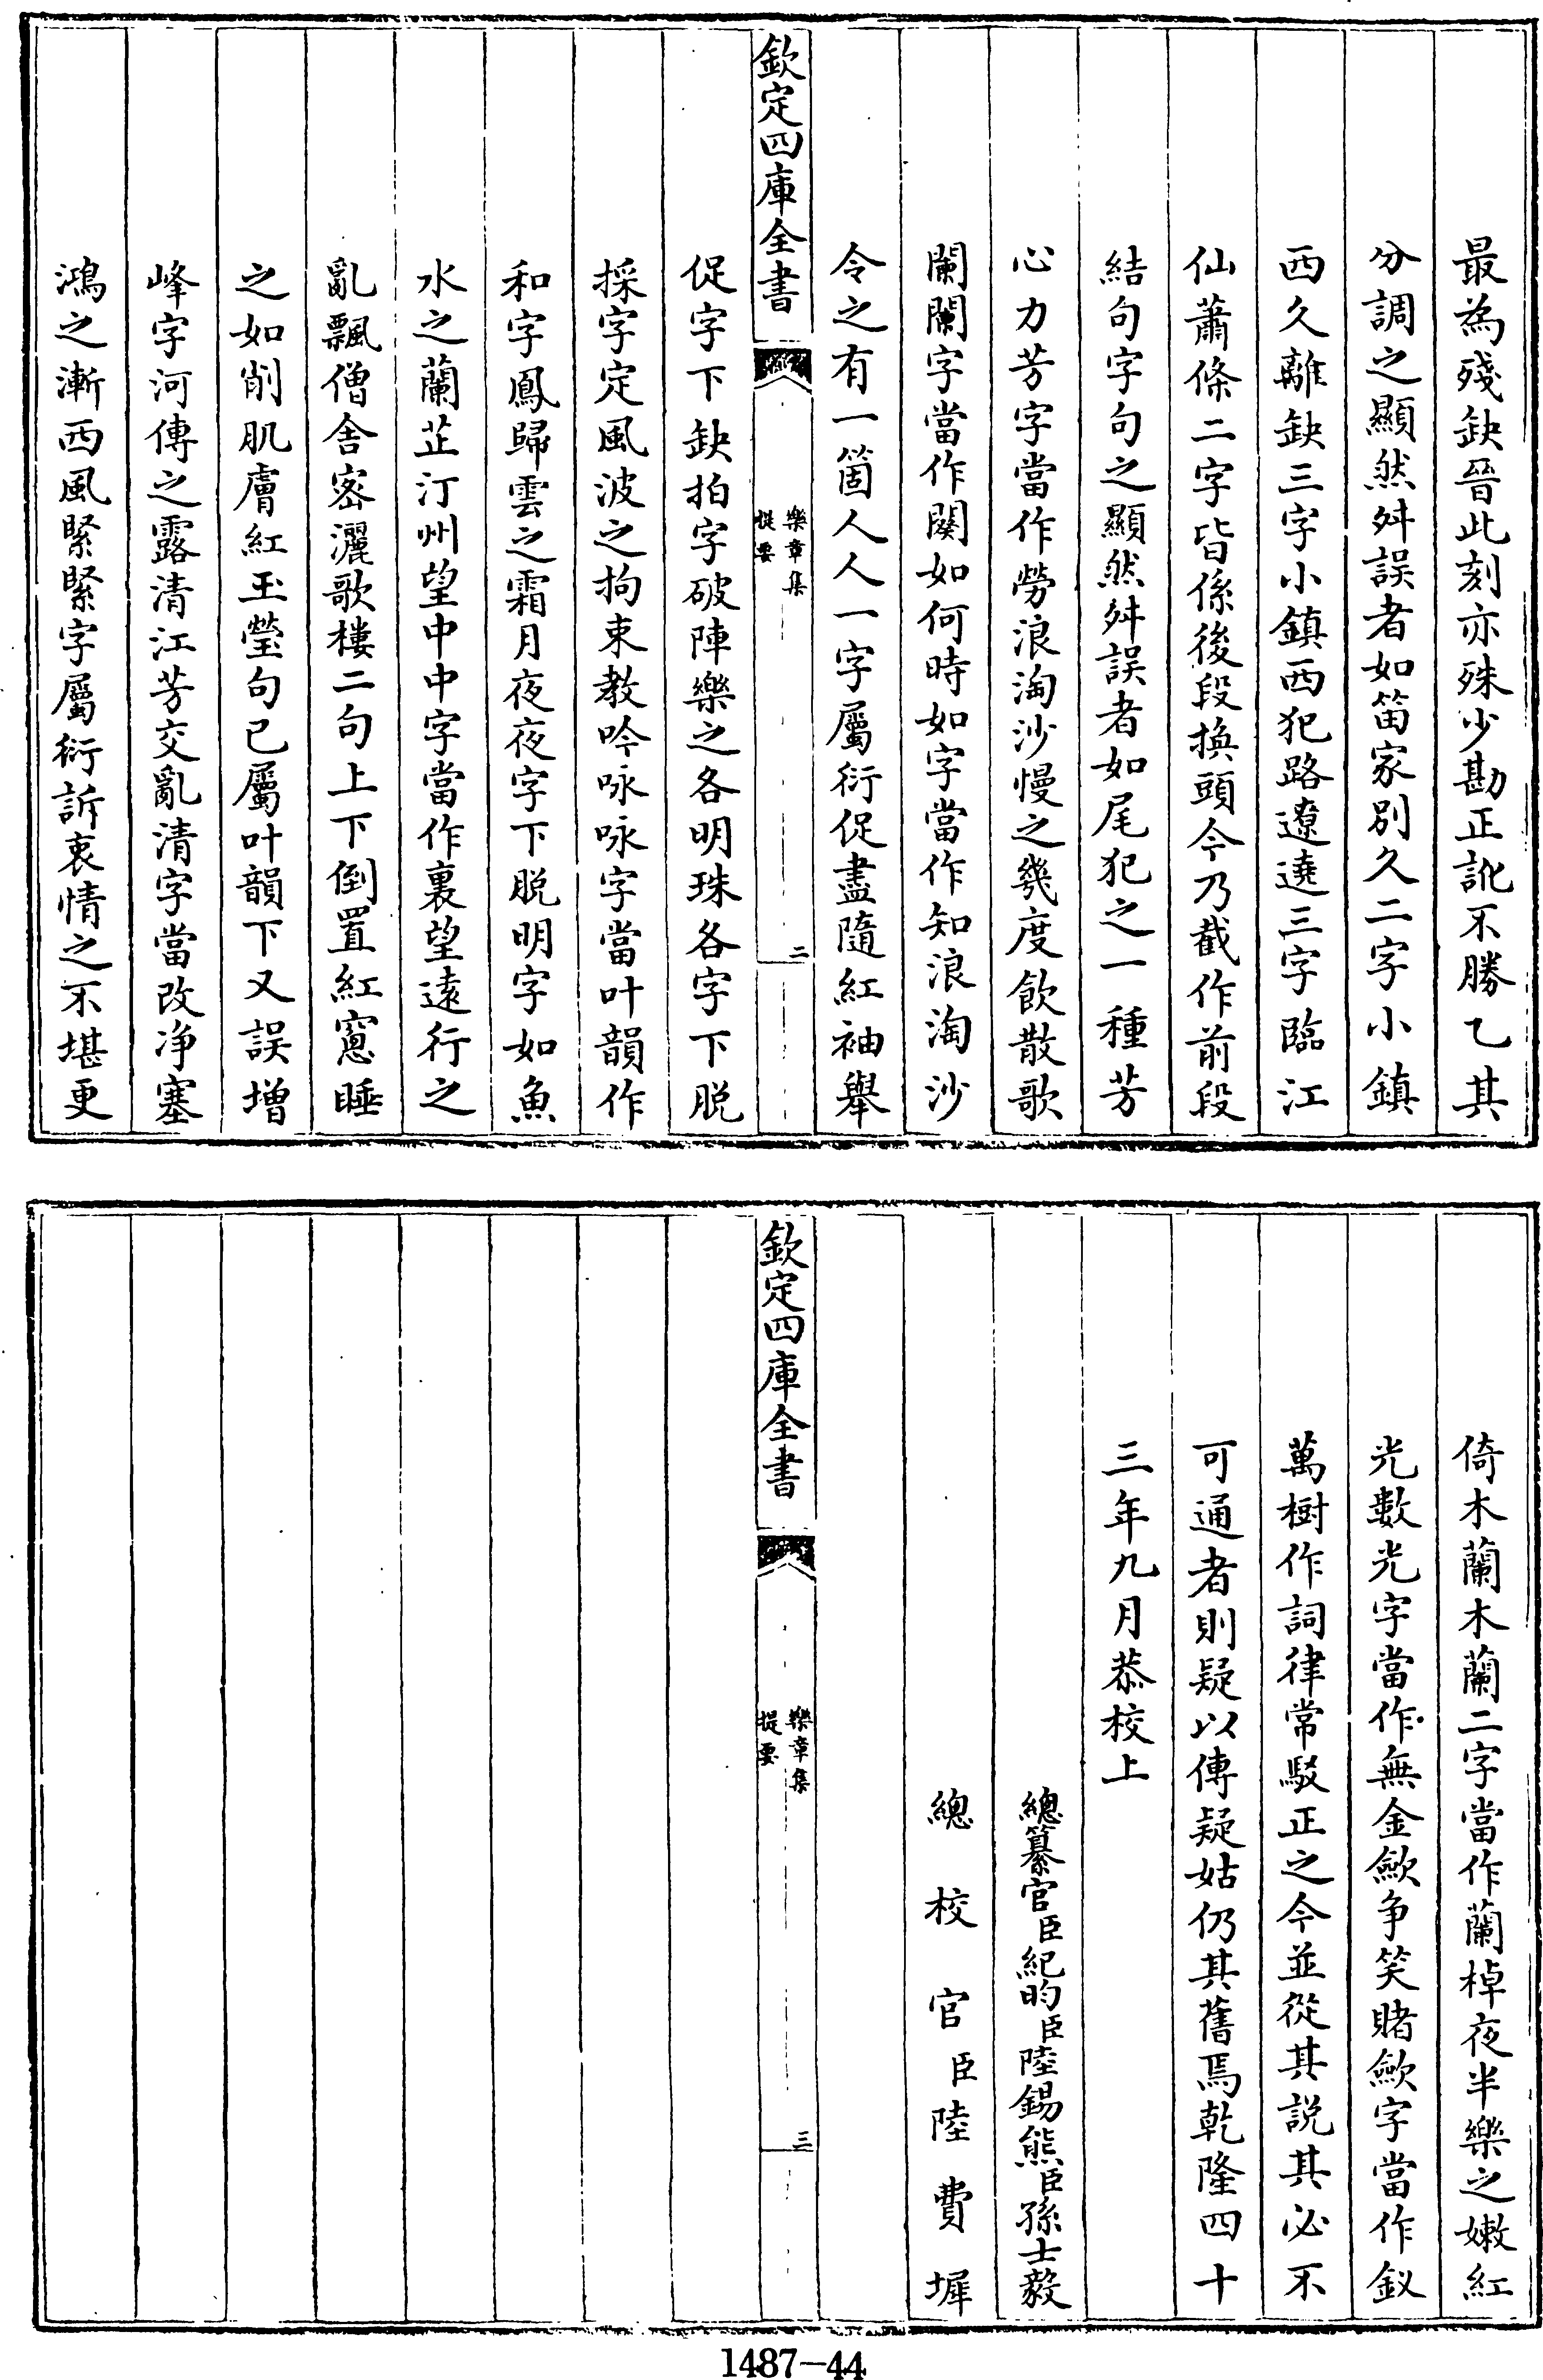 最為殘缺晉此刻亦殊少勘正訛不勝乙其
分調之顯然舛誤者如笛家別久二字小鎮
西久離缺三字小鎮西犯路遼遶三字臨江
仙蕭條二字皆係後段換頭今乃截作前段
結句字句之顯然舛誤者如尾犯之一種芳
心力芳字當作勞浪淘沙慢之幾度飲散歌
闌闌字當作闋如何時如字當作知浪淘沙
令之有一箇人人一字屬衍促盡隨紅袖舉
欽定四庫全書
樂章集
提要
二
促字下缺拍字破陣樂之各明珠各字下脱
採字定風波之拘束教吟咏咏字當叶韻作
和字鳳歸雲之霜月夜夜字下脱明字如魚
水之蘭芷汀州望中中字當作裏望遠行之
亂飄僧舍密灑歌樓二句上下倒置紅窓睡
之如削肌膚紅玉瑩句已屬叶韻下又誤增
峰字河傳之露清江芳交亂清字當改净塞
鴻之漸西風緊緊字屬衍訴衷情之不堪更
倚木蘭木蘭二字當作蘭棹夜半樂之嫩紅
光數光字當作無金歛争笑賭歛字當作釵
萬樹作詞律常駁正之今並從其説其必不
可通者則疑以傳疑姑仍其舊焉乾隆四十
三年九月恭校上
總纂官臣紀昀臣陸錫熊臣孫士毅
總校官臣陸費墀
欽定四庫全書
樂章集
提要
三
1487-44